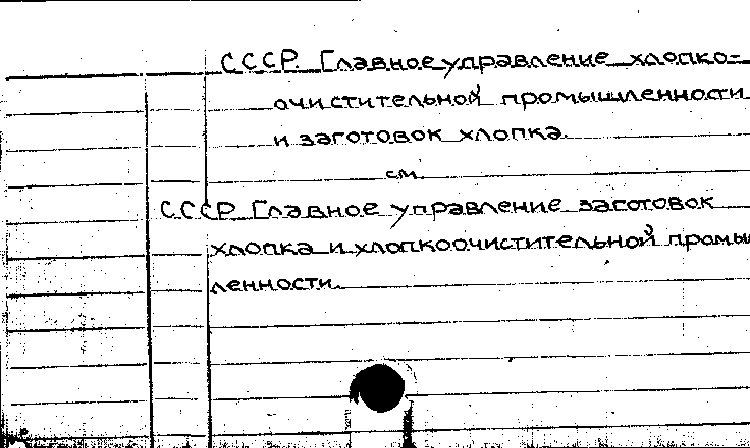 СССР. Главное управление хлопко-
очистительной промышленности
и заготовок хлопка.
см.
СССР. Главное управление заготовок
хлопка и хлопкоочистительной промы
ленности.